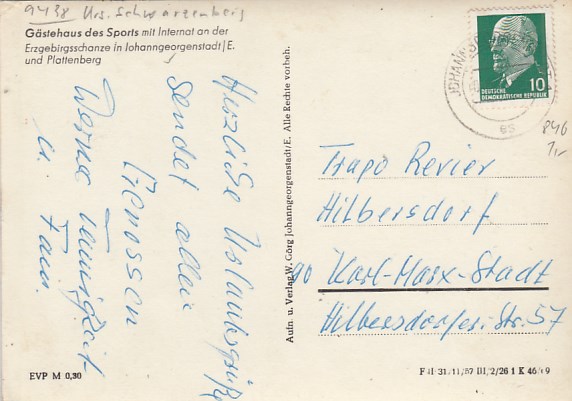 9438 Krs. Schwarzenberg
Gästehaus des Sports mit Internat an der
Erzgebirgsschanze in Johanngeorgenstadt/E.
und Plattenberg
Herzliche Urlaubsgrüße
sendet allen
Genossen
Werner
u. Fam.
EVP M 0,30
Aufn. u. Verlag W. Görg Johanngeorgenstadt/E. Alle Rechte vorbeh.
DEUTSCHE
DEMOKRATISCHE REPUBLIK
10
Trapo Revier
Hilbersdorf
90 Karl-Marx-Stadt
Hilbersdorfer-Str. 57